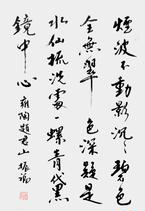 煙波不動影沉沉碧色
全無翠色深疑是
水仙梳洗處一螺青黛
鏡中心 雍陶題君山